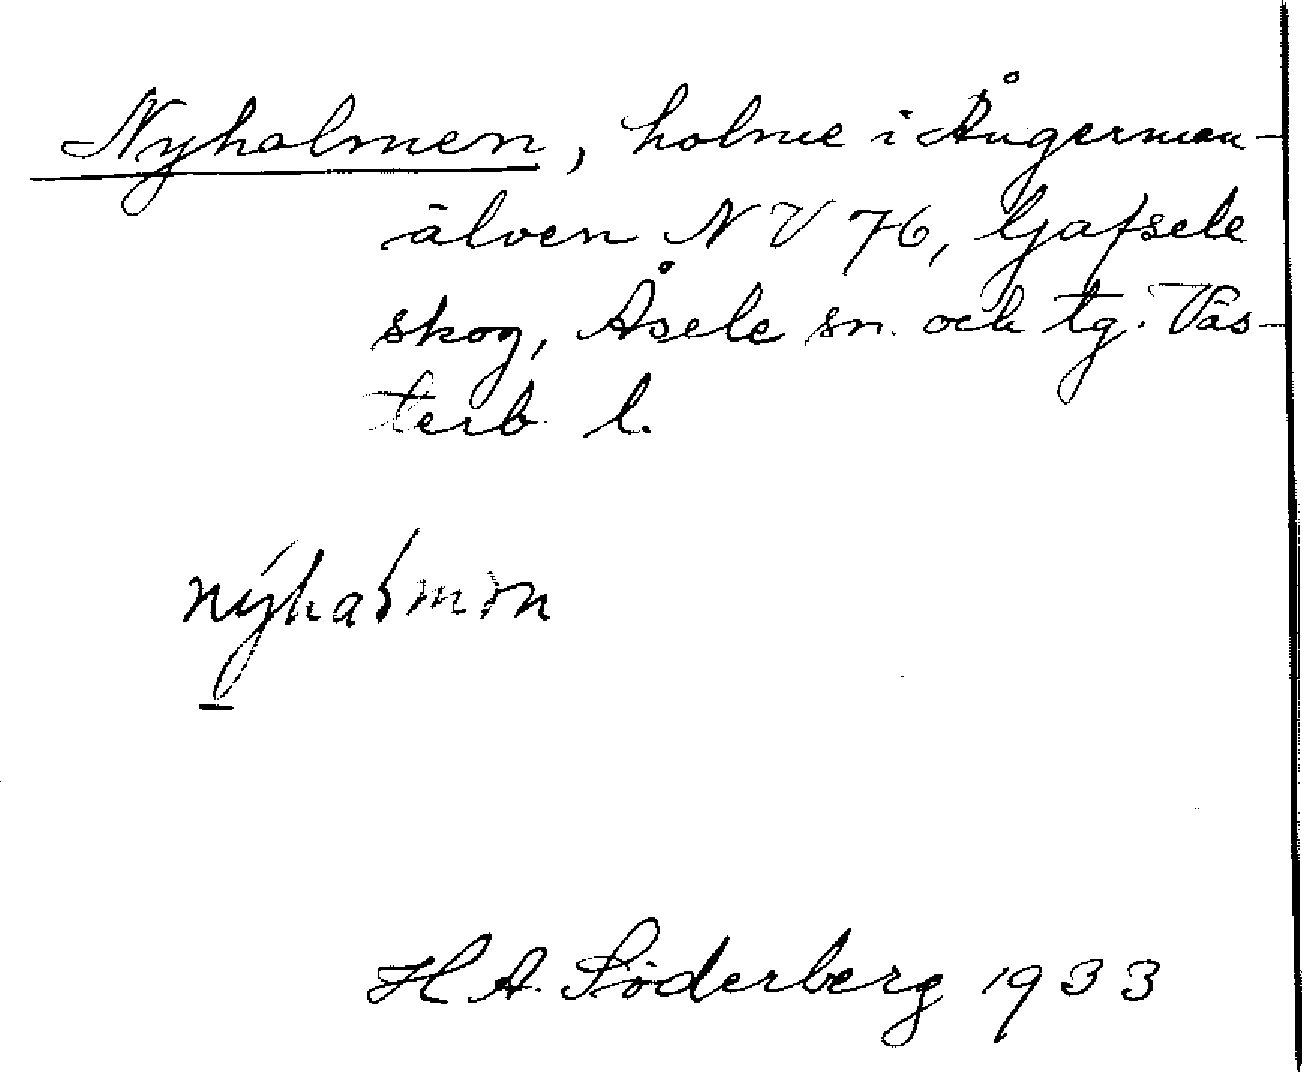 Nyholmen, holme i Ångerman-
älven NV 76, Gafsele
skog, Åsele sn. och tg. Väs-
terb. l.
H A. Söderberg 1933